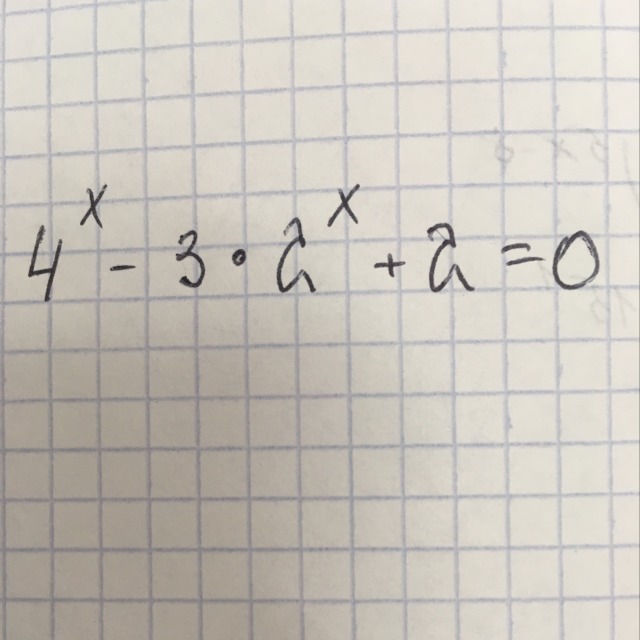 4^x - 3 · 2^x + 2 = 0